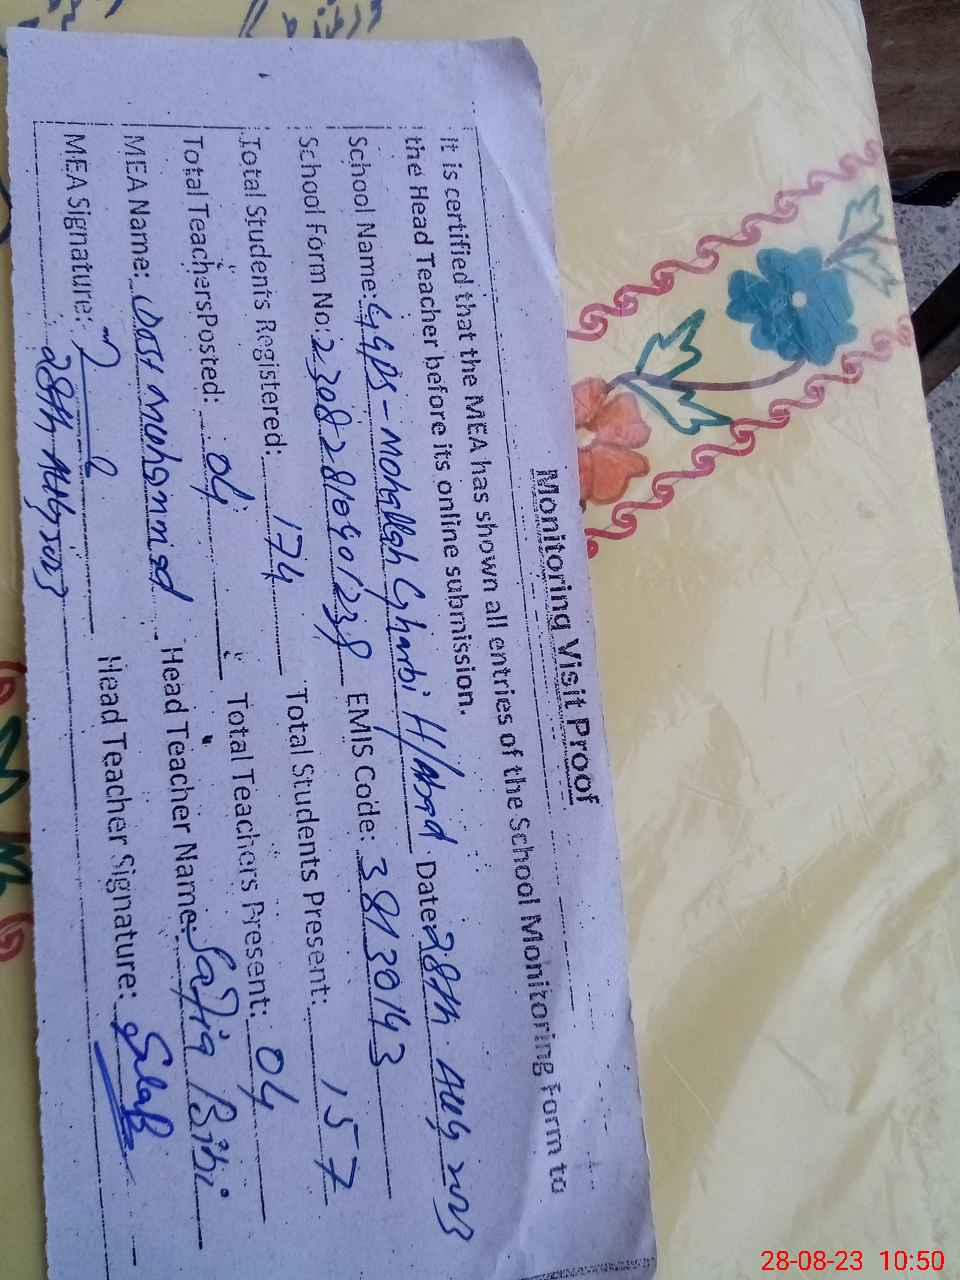 Monitoring Visit Proof
It is certified that the MEA has shown all entries of the School Monitoring Form to
the Head Teacher before its online submission.
School Name: GGPS - Mohallah Gharbi H/abad Date: 28th Aug 2023
School Form No: EMIS Code: 38130143
Total Students Registered: 174 Total Students Present: 157
Total TeachersPosted: 04 Total Teachers Present: 04
MEA Name: Dost Muhammad Head Teacher Name: Safia Bibi
MEA Signature: Head Teacher Signature:
28th Aug 2023
28-08-23 10:50